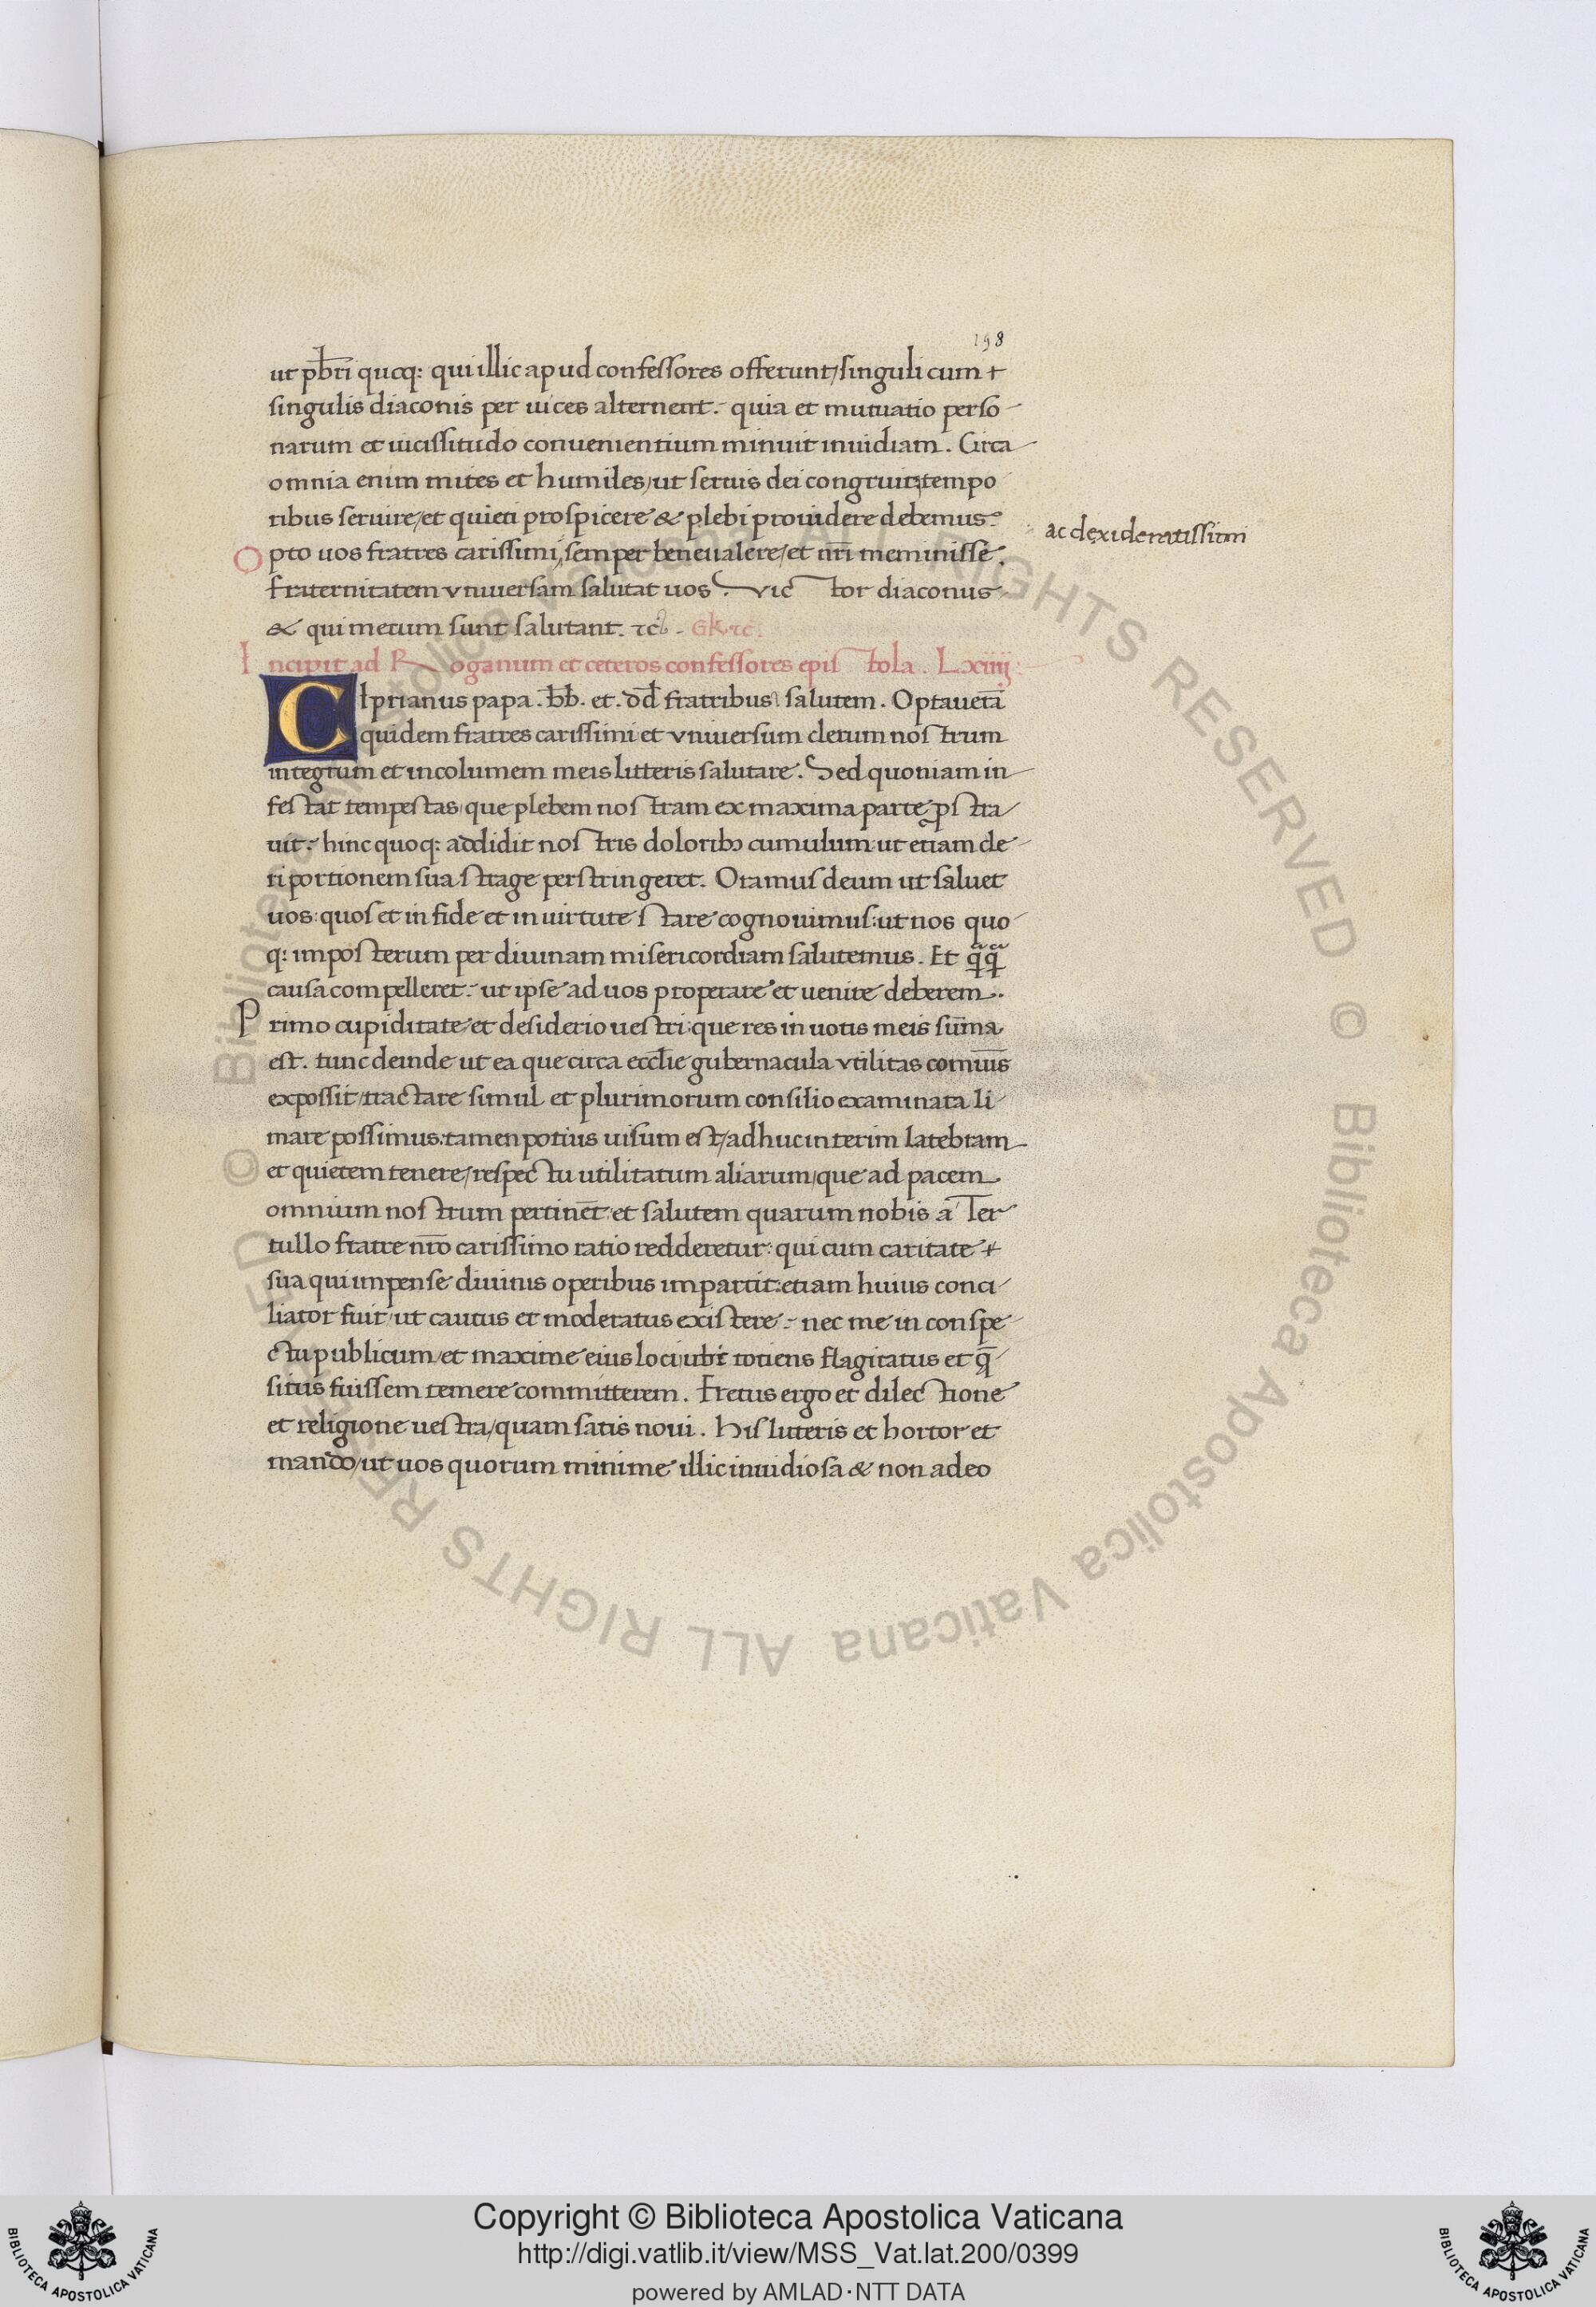 198
ut pb̅ri quoq: qui illic apud confessores offerunt/singuli cum +
singulis diaconis per uices alternent.- quia et mutuatio perso-
narum et uicissitudo conuenientium minuit inuidiam. Circa
omnia enim mites et humiles/ut seruis dei congruit/tempo
ribus seruire/et quieti prospicere & plebi prouidere debemus.
ac dexideratissimi
Opto uos fratres carissimi, semper bene ualere/et nr̅i meminisse.
fraternitatem vniuersam salutat uos. Victor diaconus
& qui mecum sunt salutant. τελ. GK τε.
Incipit ad Roganum et ceteros confessores epistola. Lxiiij.
CIprianus papa. b̅b̅. et. d̅d̅ fratribus salutem. Optauera̅
quidem fratres carissimi et vniuersum clerum nostrum
integrum et incolumem meis litteris salutare. Sed quoniam in-
festat tempestas/que plebem nostram ex maxima parte ꝓstra
uit.- hinc quoq: addidit nostris doloribꝫ cumulum:ut etiam cle-
ri portionem sua strage perstringeret. Oramus deum ut saluet
uos:quos et in fide et in uirtute stare cognouimus:ut nos quo-
q: imposterum per diuinam misericordiam salutemus. Et qͣqͣ
causa compelleret.- ut ipse ad uos properare et uenire deberem..
Primo cupiditate et desiderio uestri:que res in uotis meis su̅ma
est. tunc deinde ut ea que circa eccl̅ie gubernacula vtilitas comu̅is
expossit/tractare simul et plurimorum consilio examinata li-
mare possimus:tamen potius uisum est/adhuc interim latebram
et quietem tenere/respectu utilitatum aliarum/que ad pacem
omnium nostrum pertine̅t et salutem quarum nobis a Ter-
tullo fratre nr̅o carissimo ratio redderetur: qui cum caritate +
sua qui impense diuinis operibus impartit:etiam huius conci-
liator fuit/ut cautus et moderatus existere.- nec me in conspe-
ctu publicum/et maxime eius loci/ubi totiens flagitatus et q̅
situs fuissem temere committerem. Fretus ergo et dilectione
et religione uestra/quam satis noui. his litteris et hortor et
mando/ut uos quorum minime illic inuidiosa & non adeo
Copyright © Biblioteca Apostolica Vaticana
http://digi.vatlib.it/view/MSS_Vat.lat.200/0399
powered by AMLAD·NTT DATA